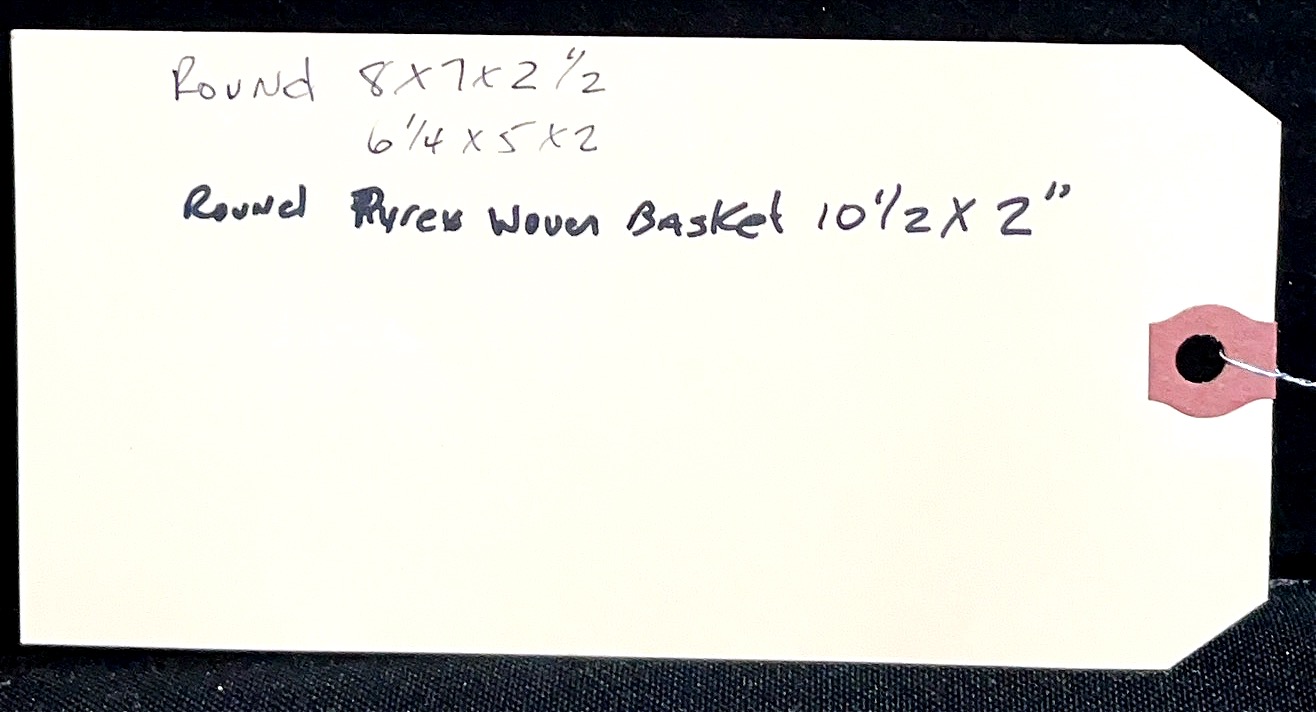 Round 8x7x2 1/2
6 1/4 x 5 x 2
Round Pyrex Woven Basket 10 1/2 x 2"